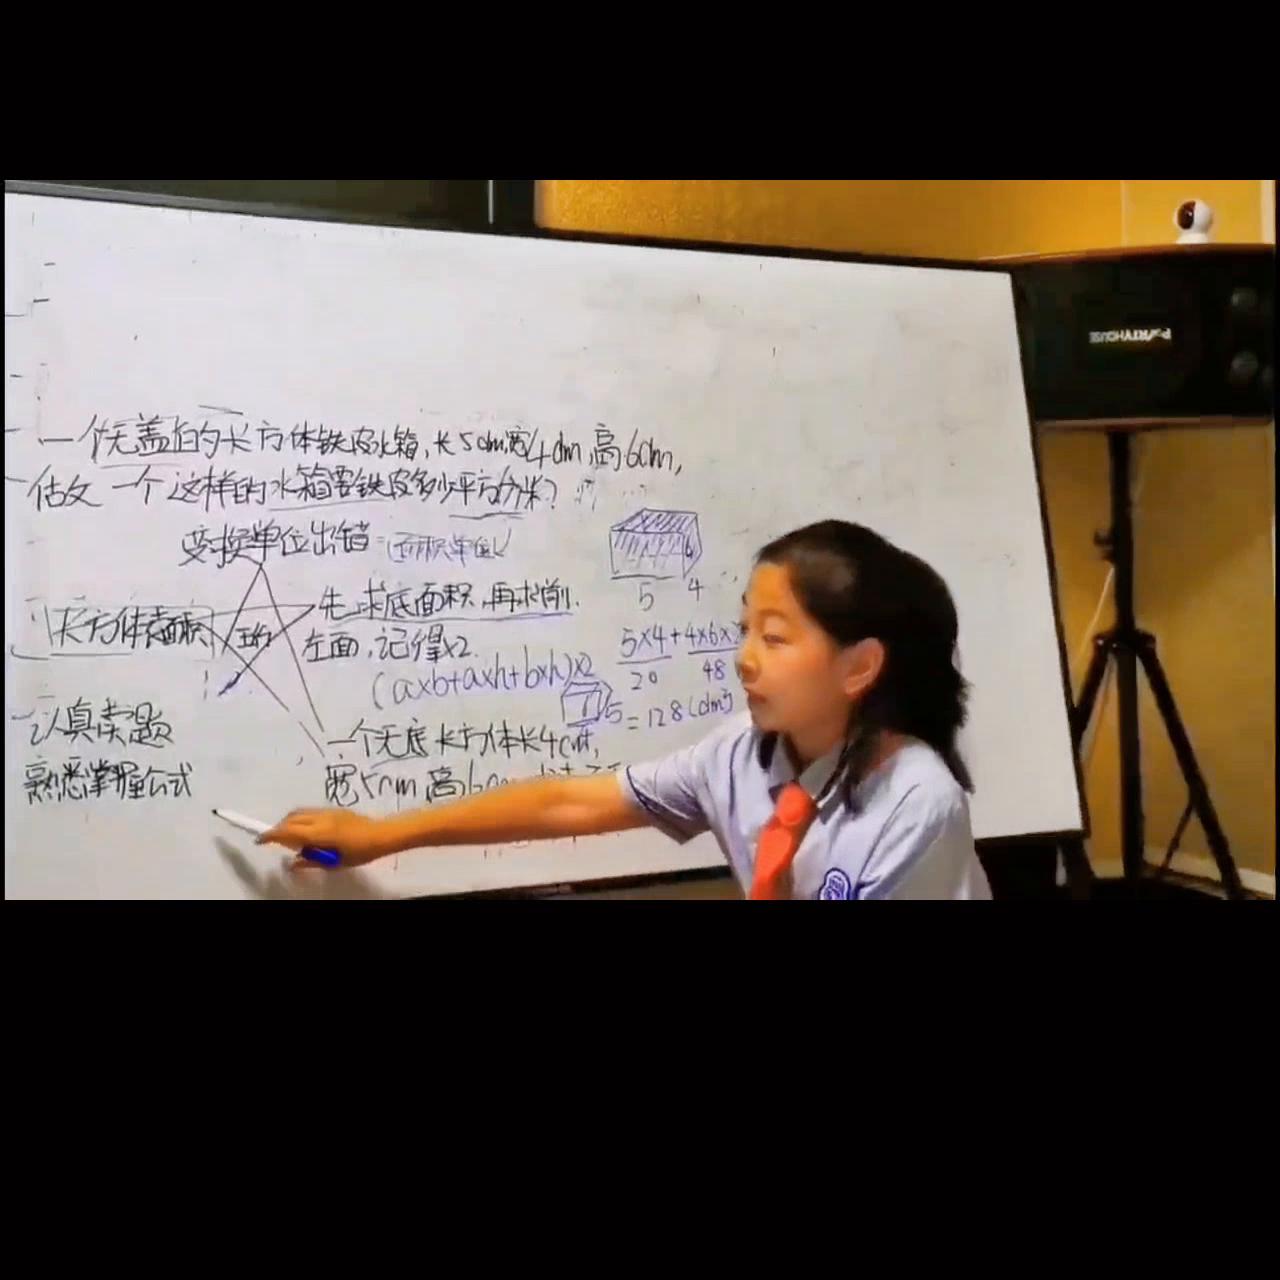 一个无盖的长方体铁皮水箱,长5dm,宽4dm,高6dm,
做一个这样的水箱需铁皮多少平方分米?
变换单位出错 面积单位
5 4
长方体表面积
先求底面积,再求前、
左面,记得×2.
5×4+4×6×2
20 48
(a×b+a×h+b×h)×2
5
=128(dm²)
认真读题
熟悉掌握公式
一个无底长方体长4cm,
宽5cm,高6
PARTYHOUSE